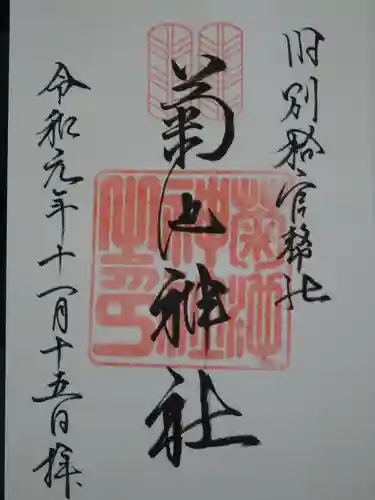 旧別格官幣社
菊池神社
菊池神社之印
令和元年十一月十五日拝